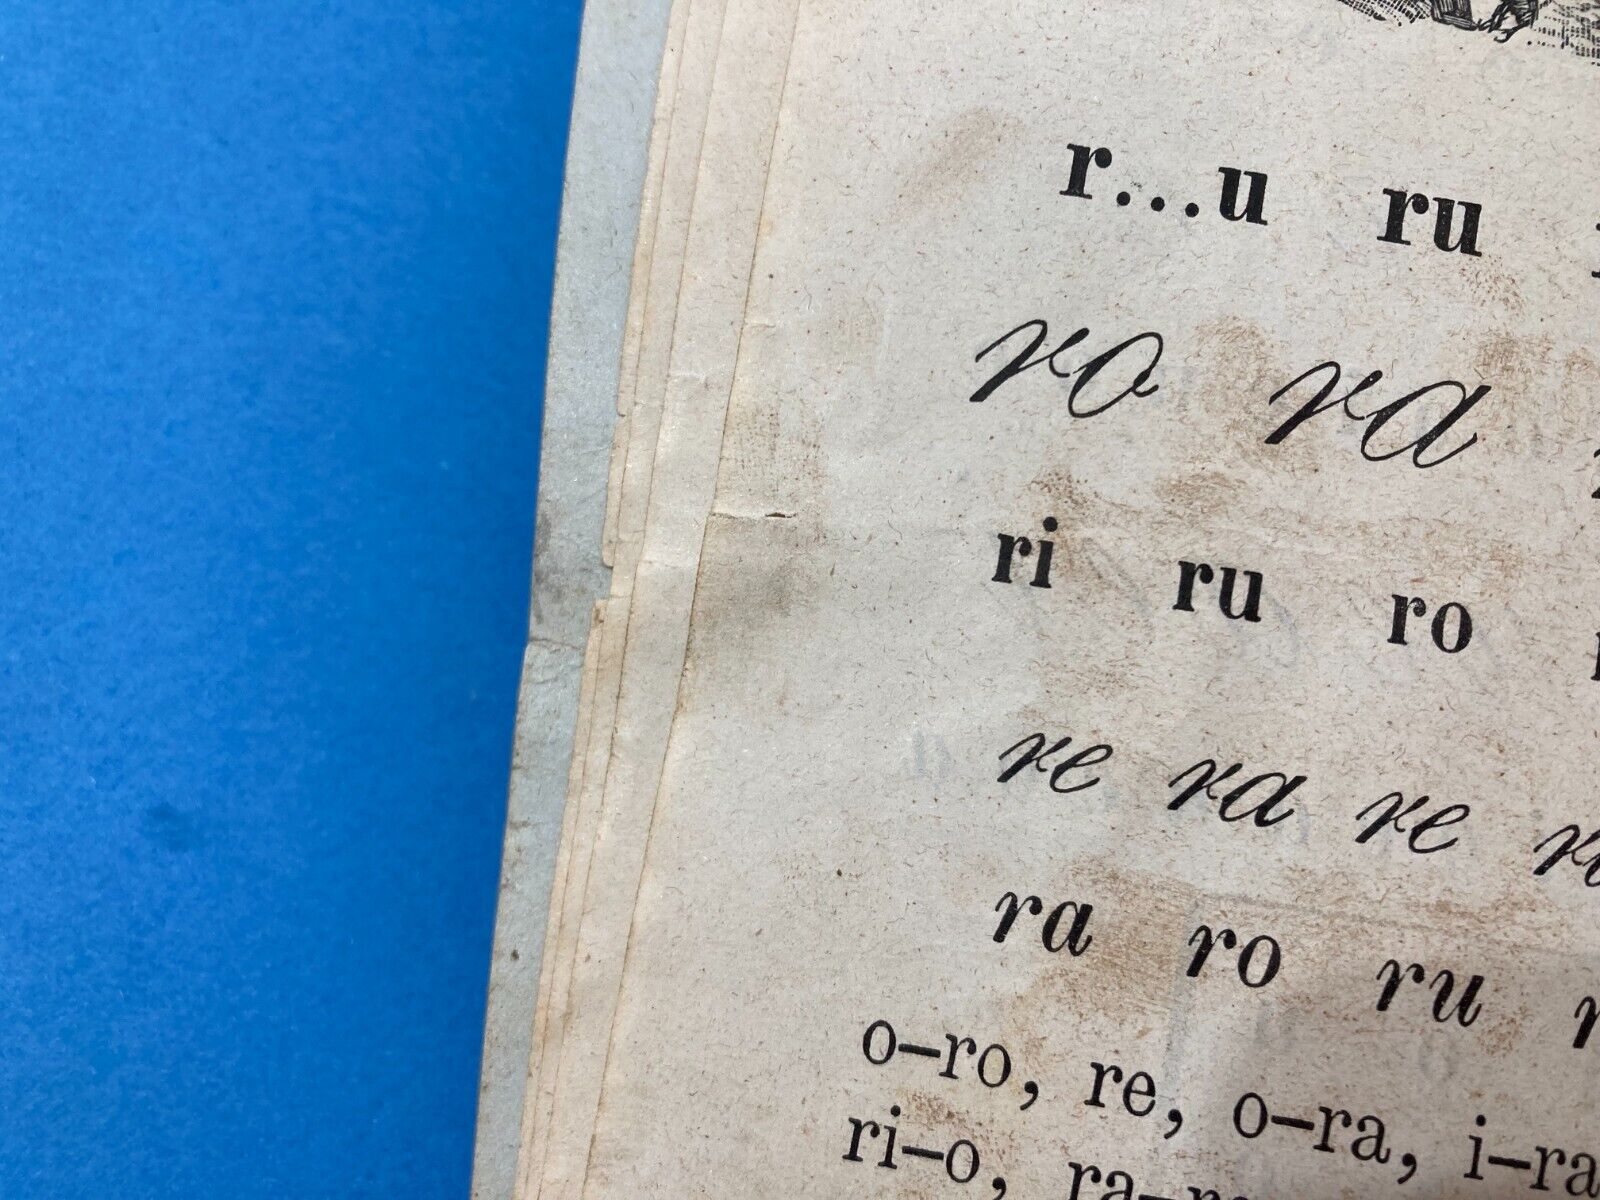 r...u ru
ro ra
ri ru ro
re ra re
ra ro ru
o-ro, re, o-ra, i-ra
ri-o,